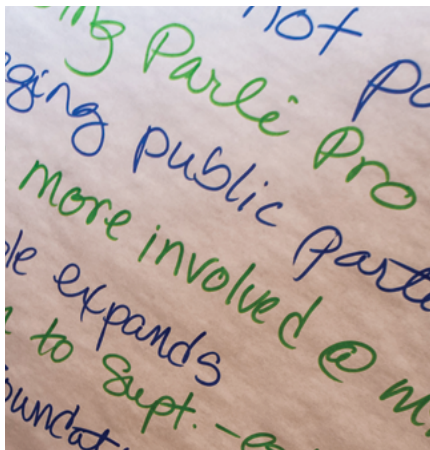 not po
ing Parli Pro
ging public parti
more involved @ m
le expands
to Supt. -
oundat